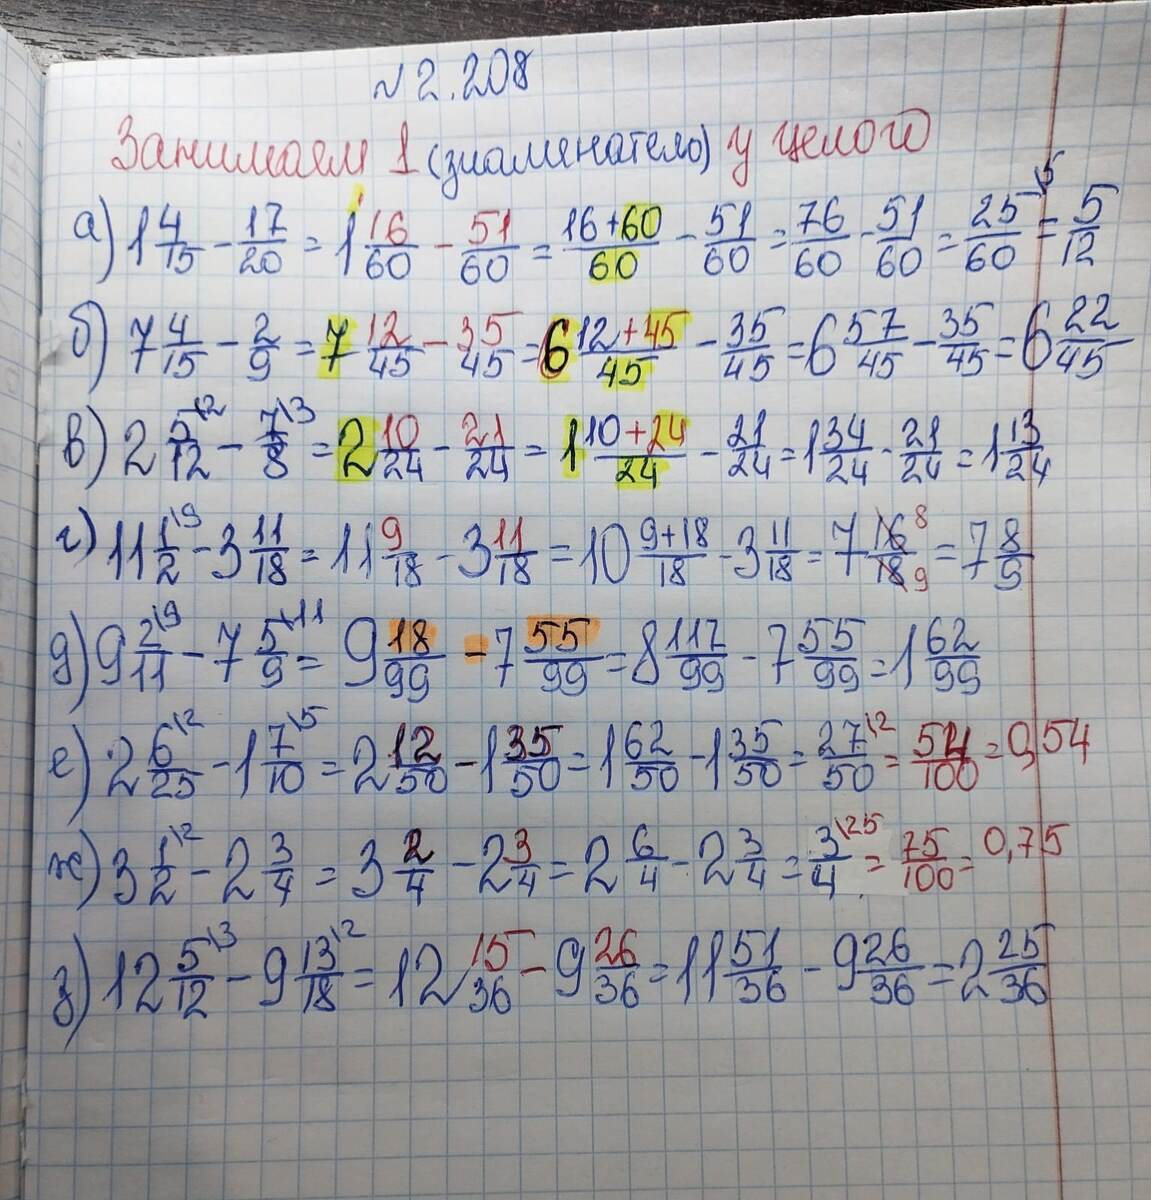 № 2.208
Занимаем 1 (знаменатель) у целого
а) 1 4/15 - 17/20 = 1 16/60 - 51/60 = 16+60/60 - 51/60 = 76/60 - 51/60 = 25\5/60 = 5/12
б) 7 4/15 - 2/9 = 7 12/45 - 35/45 = 6 12+45/45 - 35/45 = 6 57/45 - 35/45 = 6 22/45
в) 2 5\2/12 - 7\3/8 = 2 10/24 - 21/24 = 1 10+24/24 - 21/24 = 1 34/24 - 21/24 = 1 13/24
г) 11 1\9/2 - 3 11/18 = 11 9/18 - 3 11/18 = 10 9+18/18 - 3 11/18 = 7 16 8/18 9 = 7 8/9
д) 9 2\9/11 - 7 5\11/9 = 9 18/99 - 7 55/99 = 8 117/99 - 7 55/99 = 1 62/99
е) 2 6\2/25 - 1 7\5/10 = 2 12/50 - 1 35/50 = 1 62/50 - 1 35/50 = 27\2/50 = 54/100 = 0,54
ж) 3 1\2/2 - 2 3/4 = 3 2/4 - 2 3/4 = 2 6/4 - 2 3/4 = 3\25/4 = 75/100 = 0,75
з) 12 5\3/12 - 9 13\2/18 = 12 15/36 - 9 26/36 = 11 51/36 - 9 26/36 = 2 25/36